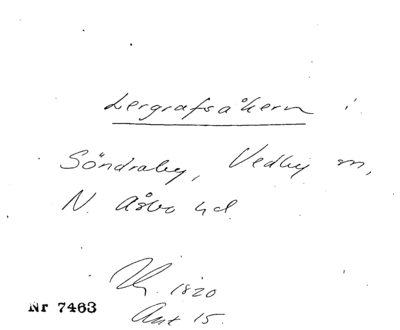 Lergrafsåkern i
Söndraby, Vedby sn,
N. Åsbo hd
Kr. 1820
Ant 15.
Nr 7463